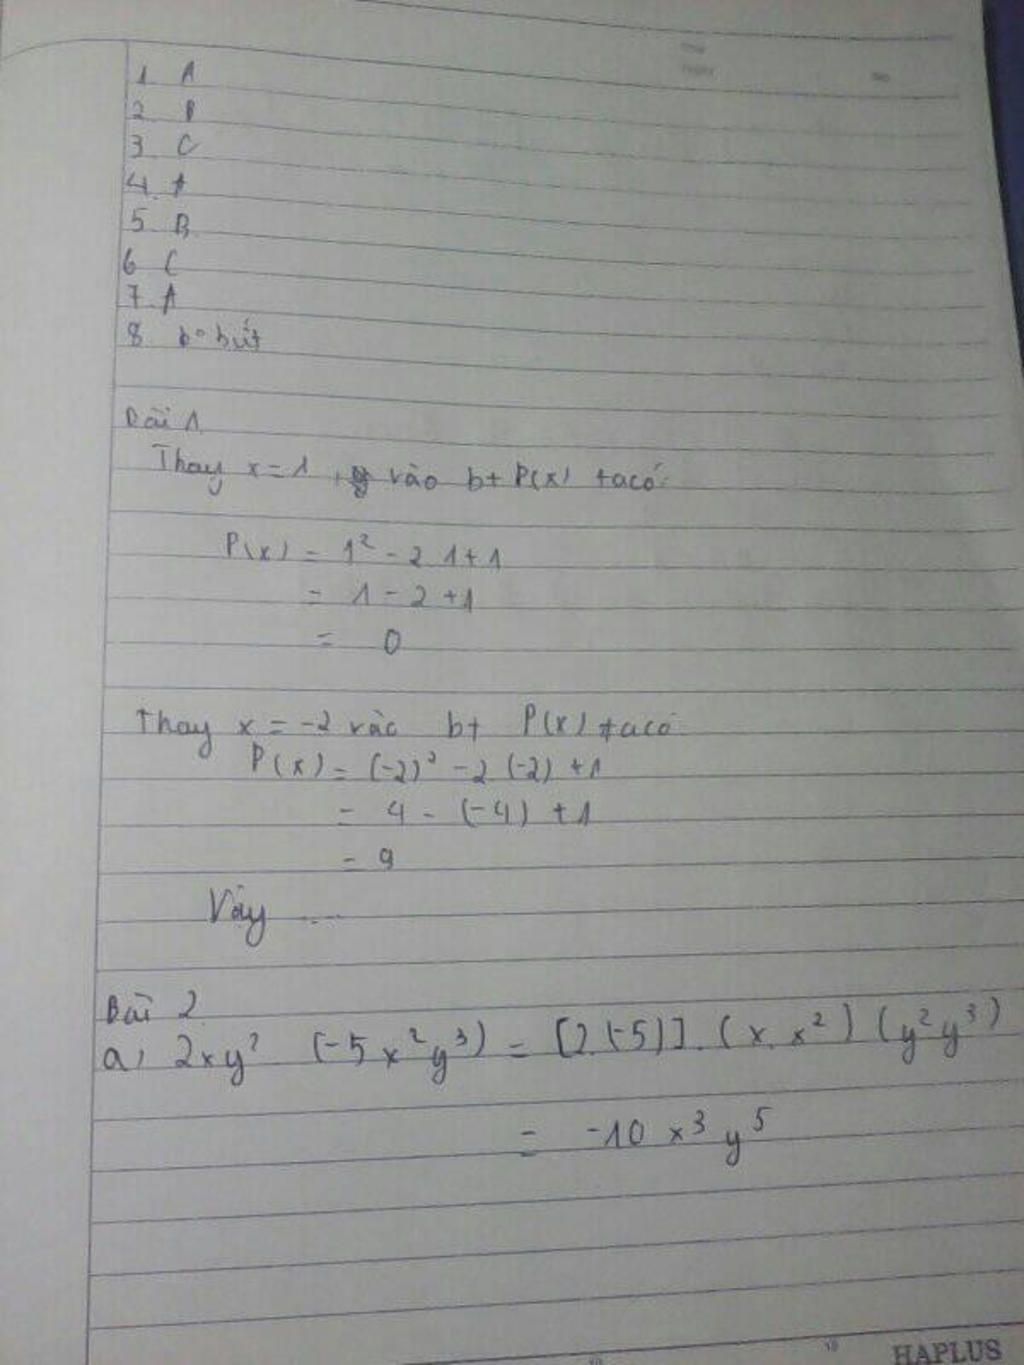 1 A
2 B
3 C
4. A
5 B
6 C
7 A
8
Bài 1
Thay x = 1, vào bt P(x) ta có:
P(x) = 1² - 2 1 + 1
= 1 - 2 + 1
= 0
Thay x = -2 vào bt P(x) ta có
P(x) = (-2)² - 2 (-2) + 1
= 4 - (-4) + 1
= 9
Vậy ....
Bài 2
a, 2xy² (-5x²y³) = [2.(-5)]. (x.x²) (y²y³)
= -10 x³ y⁵
HAPLUS